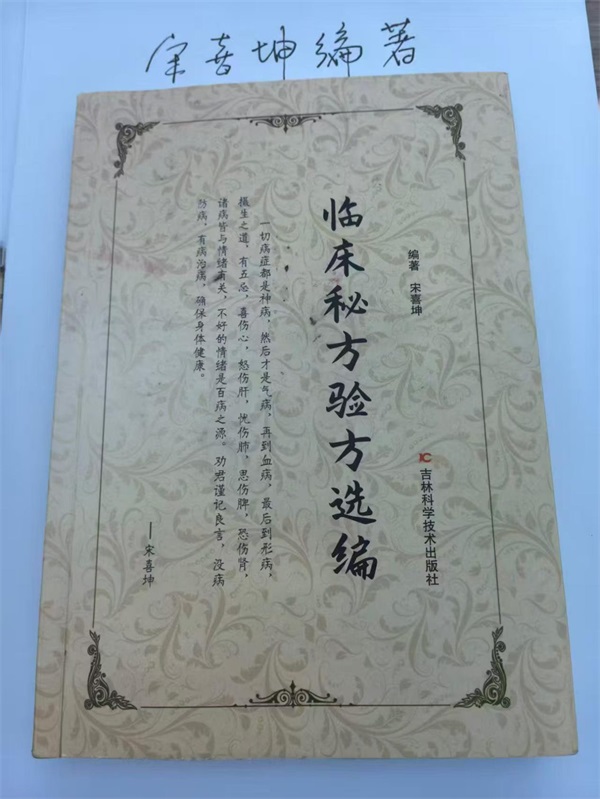 宋喜坤编著
编著 宋喜坤
临床秘方验方选编
吉林科学技术出版社
一切病症都是神病，然后才是气病，再到血病，最后到形病，
摄生之道，有五忌，喜伤心，怒伤肝，忧伤肺，思伤脾，恐伤肾，
诸病皆与情绪有关，不好的情绪是百病之源。劝君谨记良言，没病
防病，有病治病，确保身体健康。
——宋喜坤